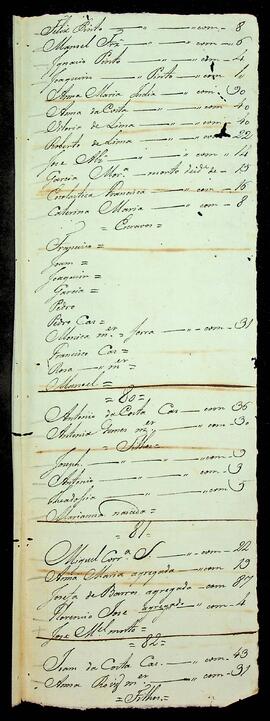 Felix Pinto — " — " — com — 8
Manoel Frz — " — " — com — 6
Ignacio Pinto — " — com — 4
Joaquim — " Pinto — " — com — 1
Anna Maria India — " — com — 90
Anna da Costa — " — com — 40
Vitoria de Lima — " — com — 40
Roberto de Lima — " — com — 22
Jose — " — " com — 14
Garcia Mor.ª — morto de id.e de — 15
Escolastica Francisca — com — 16
Caterina Maria — " — com — 8
= Escravos =
Francisco =
Joam =
Joaquim =
Garcia =
Pedro
Pedro Cas =
Monica m.er forra — " — com — 31
Francisco Cas =
Rosa — " m.er =
Manoel =
= 80 =
Antonio da Costa Cas — com 36
Antonia Gomes m.er — com — 30
= Filhos =
Joseph — " — " — com — 9
Antonio — " — " — com — 3
Theadosia — " — " com — 5
Marianna nascida =
= 81 =
Miguel Corr.ª S — " — com — 22
Anna Maria agregada — com — 19
Josefa de Barros agregada — com — 87
Florencio Jose agregado — com — 4
Jose M.el morto =
= 82 =
Joam da Costa Cas — com — 43
Anna Roiz m.er — " — com — 31
= Filhos =